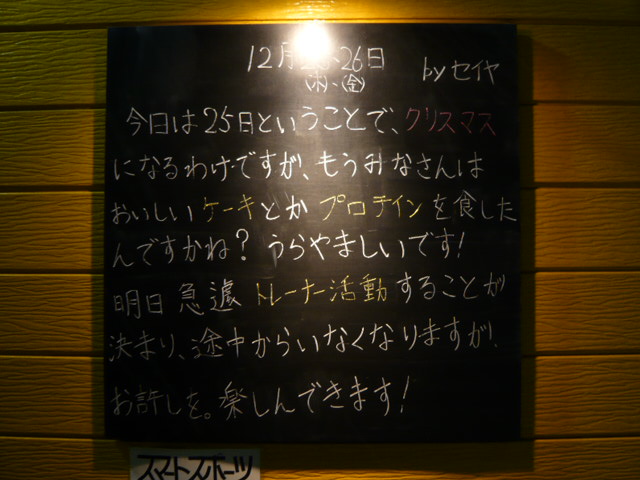 12月 26日 byセイヤ
(木)~(金)
今日は25日ということで、クリスマス
になるわけですが、もうみなさんは
おいしいケーキとかプロテインを食した
んですかね?うらやましいです!
明日急遽トレーナー活動することが
決まり、途中からいなくなりますが、
お許しを。楽しんできます!
スマートスポーツ